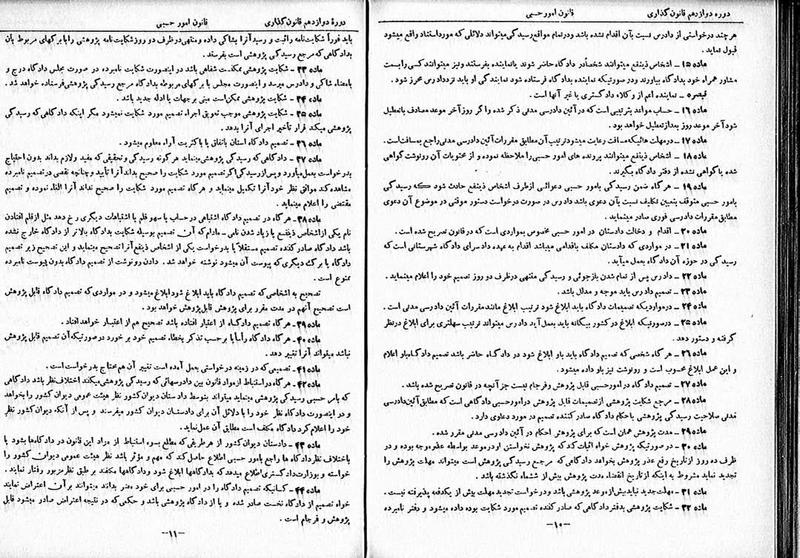 دوره دوازدهم قانون گذاری
قانون امور حسبی
هر چند درخواستی از دادرس نسبت بآن اقدام نشده باشد ودرتمام مواقع رسیدگی میتواند دلائلی که مورد استناد واقع میشود
قبول نماید.
ماده ۱۵ – اشخاص ذینفع میتوانند شخصاً در دادگاه حاضر شوند یا نماینده بفرستند ونیز میتوانند کسی را بسمت
مشاور همراه خود بدادگاه بیاورند ودر صورتیکه نماینده بدادگاه فرستاده شود نمایندگی او باید نزد دادرس محرز شود.
تبصره – نماینده اعم از وکلاء دادگستری یا غیر آنها است.
ماده ۱۶ – حساب مواعد بترتیبی است که در آئین دادرسی مدنی ذکر شده واگر روز آخر موعد مصادف باتعطیل
شود آخر موعد روز بعد از تعطیل خواهد بود.
ماده ۱۷ – در مهلت هائیکه مسافت رعایت میشود ترتیب آن مطابق مقررات آئین دادرسی مدنی راجع بمسافت است.
ماده ۱۸ – اشخاص ذینفع میتوانند پرونده های امور حسبی را ملاحظه نموده و از محتویات آن رونوشت گواهی
شده یا گواهی نشده از دفتر دادگاه بگیرند.
ماده ۱۹ – هر گاه ضمن رسیدگی بامور حسبی دعوائی از طرف اشخاص ذینفع حادث شود که رسیدگی
بامور حسبی متوقف بتعیین تکلیف نسبت بآن دعوی باشد دادرس در صورت درخواست دستور موقتی در موضوع آن دعوی
مطابق مقررات دادرسی فوری صادر مینماید.
ماده ۲۰ – اقدام و دخالت دادستان در امور حسبی مخصوص بمواردی است که در قانون تصریح شده است.
ماده ۲۱ – در مواردی که دادستان مکلف باقدامی میباشد اقدام به عهده دادسرای دادگاه شهرستانی است که
رسیدگی در حوزه آن دادگاه بعمل میآید.
ماده ۲۲ – دادرس پس از تمام شدن بازجوئی و رسیدگی منتهی در ظرف دو روز تصمیم خود را اعلام مینماید.
ماده ۲۳ – تصمیم دادرس باید موجه و مدلل باشد.
ماده ۲۴ – در مواردیکه تصمیمات دادگاه باید ابلاغ شود ترتیب ابلاغ مانند مقررات آئین دادرسی مدنی است.
ماده ۲۵ – در صورتیکه ابلاغ در کشور بیگانه باید بعمل آید دادرس میتواند ترتیب سهلتری برای ابلاغ در نظر
گرفته و دستور دهد.
ماده ۲۶ – هر گاه شخصی که تصمیم دادگاه باید باو ابلاغ شود در دادگاه حاضر باشد تصمیم دادگاه باو اعلام
و این عمل ابلاغ محسوب است و رونوشت نیز باو داده میشود.
ماده ۲۷ – تصمیم دادگاه در امور حسبی قابل پژوهش و فرجام نیست جز آنچه در قانون تصریح شده باشد.
ماده ۲۸ – مرجع شکایت پژوهشی از تصمیمات قابل پژوهش در امور حسبی دادگاهی است که مطابق آئین دادرسی
مدنی صلاحیت رسیدگی پژوهشی باحکام دادگاه صادر کننده تصمیم در مورد دعاوی دارد.
ماده ۲۹ – مدت پژوهش همان است که برای پژوهش احکام در آئین دادرسی مدنی مقرر شده.
ماده ۳۰ – در صورتیکه پژوهش خواه اثبات کند که پژوهش نخواستن او در موعد بواسطه عذر موجه بوده و در
ظرف ده روز از تاریخ رفع عذر پژوهش بخواهد دادگاهی که مرجع رسیدگی پژوهش است میتواند مهلت پژوهش را
تجدید نماید مشروط به اینکه از تاریخ انقضاء مدت پژوهش بیش از ششماه نگذشته باشد.
ماده ۳۱ – مهلت جدید نباید بیش از موعد پژوهش باشد ودرخواست تجدید مهلت بیش از یکدفعه پذیرفته نیست.
ماده ۳۲ – شکایت پژوهشی بدفتر دادگاهی که صادر کننده تصمیم مورد شکایت بوده داده میشود و دفتر نامبرده
–۱۰–
دورهٔ دوازدهم قانون گذاری
قانون امور حسبی
باید فوراً شکایت نامه را ثبت و رسید آنرا بشاکی داده ومنتهی در ظرف دو روز شکایت نامه پژوهشی را با برگهای مربوط بآن
بدادگاهی که مرجع رسیدگی پژوهشی است بفرستد.
ماده ۳۳ – شکایت پژوهشی ممکنست شفاهی باشد در اینصورت شکایت نامبرده در صورت مجلس دادگاه درج و
بامضاء شاکی و دادرس میرسد و صورت مجلس با برگهای مربوطه بدادگاه مرجع رسیدگی پژوهشی فرستاده خواهد شد.
ماده ۳۴ – شکایت پژوهشی ممکن است مبنی بر جهات یا ادله جدید باشد.
ماده ۳۵ – شکایت پژوهشی موجب تعویق اجراء تصمیم مورد شکایت نمیشود مگر اینکه دادگاهی که رسیدگی
پژوهشی میکند قرار تأخیر اجرای آنرا بدهد.
ماده ۳۶ – تصمیم دادگاه استان باتفاق یا باکثریت آراء معلوم میشود.
ماده ۳۷ – دادگاهی که رسیدگی پژوهشی مینماید هر گونه رسیدگی و تحقیقی که مفید ولازم بداند بدون احتیاج
بدرخواست بعمل میآورد وپس از رسیدگی اگر تصمیم مورد شکایت را صحیح بداند آنرا تأیید و چنانچه نقصی در تصمیم نامبرده
مشاهده کند موافق نظر خود آنرا تکمیل مینماید و هرگاه تصمیم مورد شکایت را صحیح نداند آنرا الغاء نموده و تصمیم
مقتضی را اعلام مینماید.
ماده ۳۸ – هر گاه در تصمیم دادگاه اشتباهی در حساب یا سهو قلم یا اشتباهات دیگری رخ دهد مثل از قلم افتادن
نام یکی از اشخاص ذینفع یا زیاد شدن نامی – مادام که آن تصمیم بوسیله شکایت بدادگاه بالاتر از دادگاه خارج نشده
باشد دادگاه صادر کننده تصمیم مستقلاً یا بدرخواست یکی از اشخاص ذینفع آنرا تصحیح مینماید و این تصحیح زیر تصمیم
دادگاه یا برگ دیگری که پیوست آن میشود نوشته خواهد شد. دادن رونوشت از تصمیم دادگاه بدون پیوست نامبرده
ممنوع است.
تصحیح به اشخاصی که تصمیم دادگاه باید ابلاغ شود ابلاغ میشود و در مواردی که تصمیم دادگاه قابل پژوهش
است تصحیح آنهم در مدت مقرر برای پژوهش قابل پژوهش خواهد بود.
ماده ۳۹ – هرگاه تصمیم دادگاه از اعتبار افتاده باشد تصحیح هم از اعتبار خواهد افتاد.
ماده ۴۰ – هرگاه دادگاه رأساً یا بر حسب تذکر بخطاء تصمیم خود بر خورد در صورتیکه آن تصمیم قابل پژوهش
نباشد میتواند آنرا تغییر دهد.
ماده ۴۱ – تصمیمی که در زمینه درخواستی بعمل آمده است تغییر آن هم محتاج بدرخواست است.
ماده ۴۲ – هرگاه در استنباط از مواد قانون بین دادرسهائی که رسیدگی پژوهشی میکنند اختلاف نظر باشد دادگاهی
که بامر حسبی رسیدگی پژوهشی مینماید میتواند بتوسط دادستان دیوان کشور نظر هیئت عمومی دیوان کشور را بخواهد
و در اینصورت دادگاه نظر خود را با دلائل آن برای دادستان دیوان کشور میفرستد و پس از آنکه دیوان کشور نظر
خود را اعلام کرد دادگاه مکلف است مطابق آن عمل نماید.
ماده ۴۳ – دادستان دیوان کشور از هر طریقی که مطلع بسوء استنباط از مواد این قانون در دادگاهها بشود یا
باختلاف نظر دادگاه ها راجع بامور حسبی اطلاع حاصل کند که مهم و مؤثر باشد نظر هیئت عمومی دیوان کشور را
خواسته و بوزارت دادگستری اطلاع میدهد که بدادگاهها ابلاغ شود ودادگاهها مکلفند بر طبق نظر مزبور رفتار نمایند.
ماده ۴۴ – کسانیکه تصمیم دادگاه را در امور حسبی برای خود مضر بدانند میتوانند بر آن اعتراض نمایند
خواه تصمیم از دادگاه نخست صادر شده و یا از دادگاه پژوهشی باشد و حکمی که در نتیجه اعتراض صادر میشود قابل
پژوهش و فرجام است.
–۱۱–